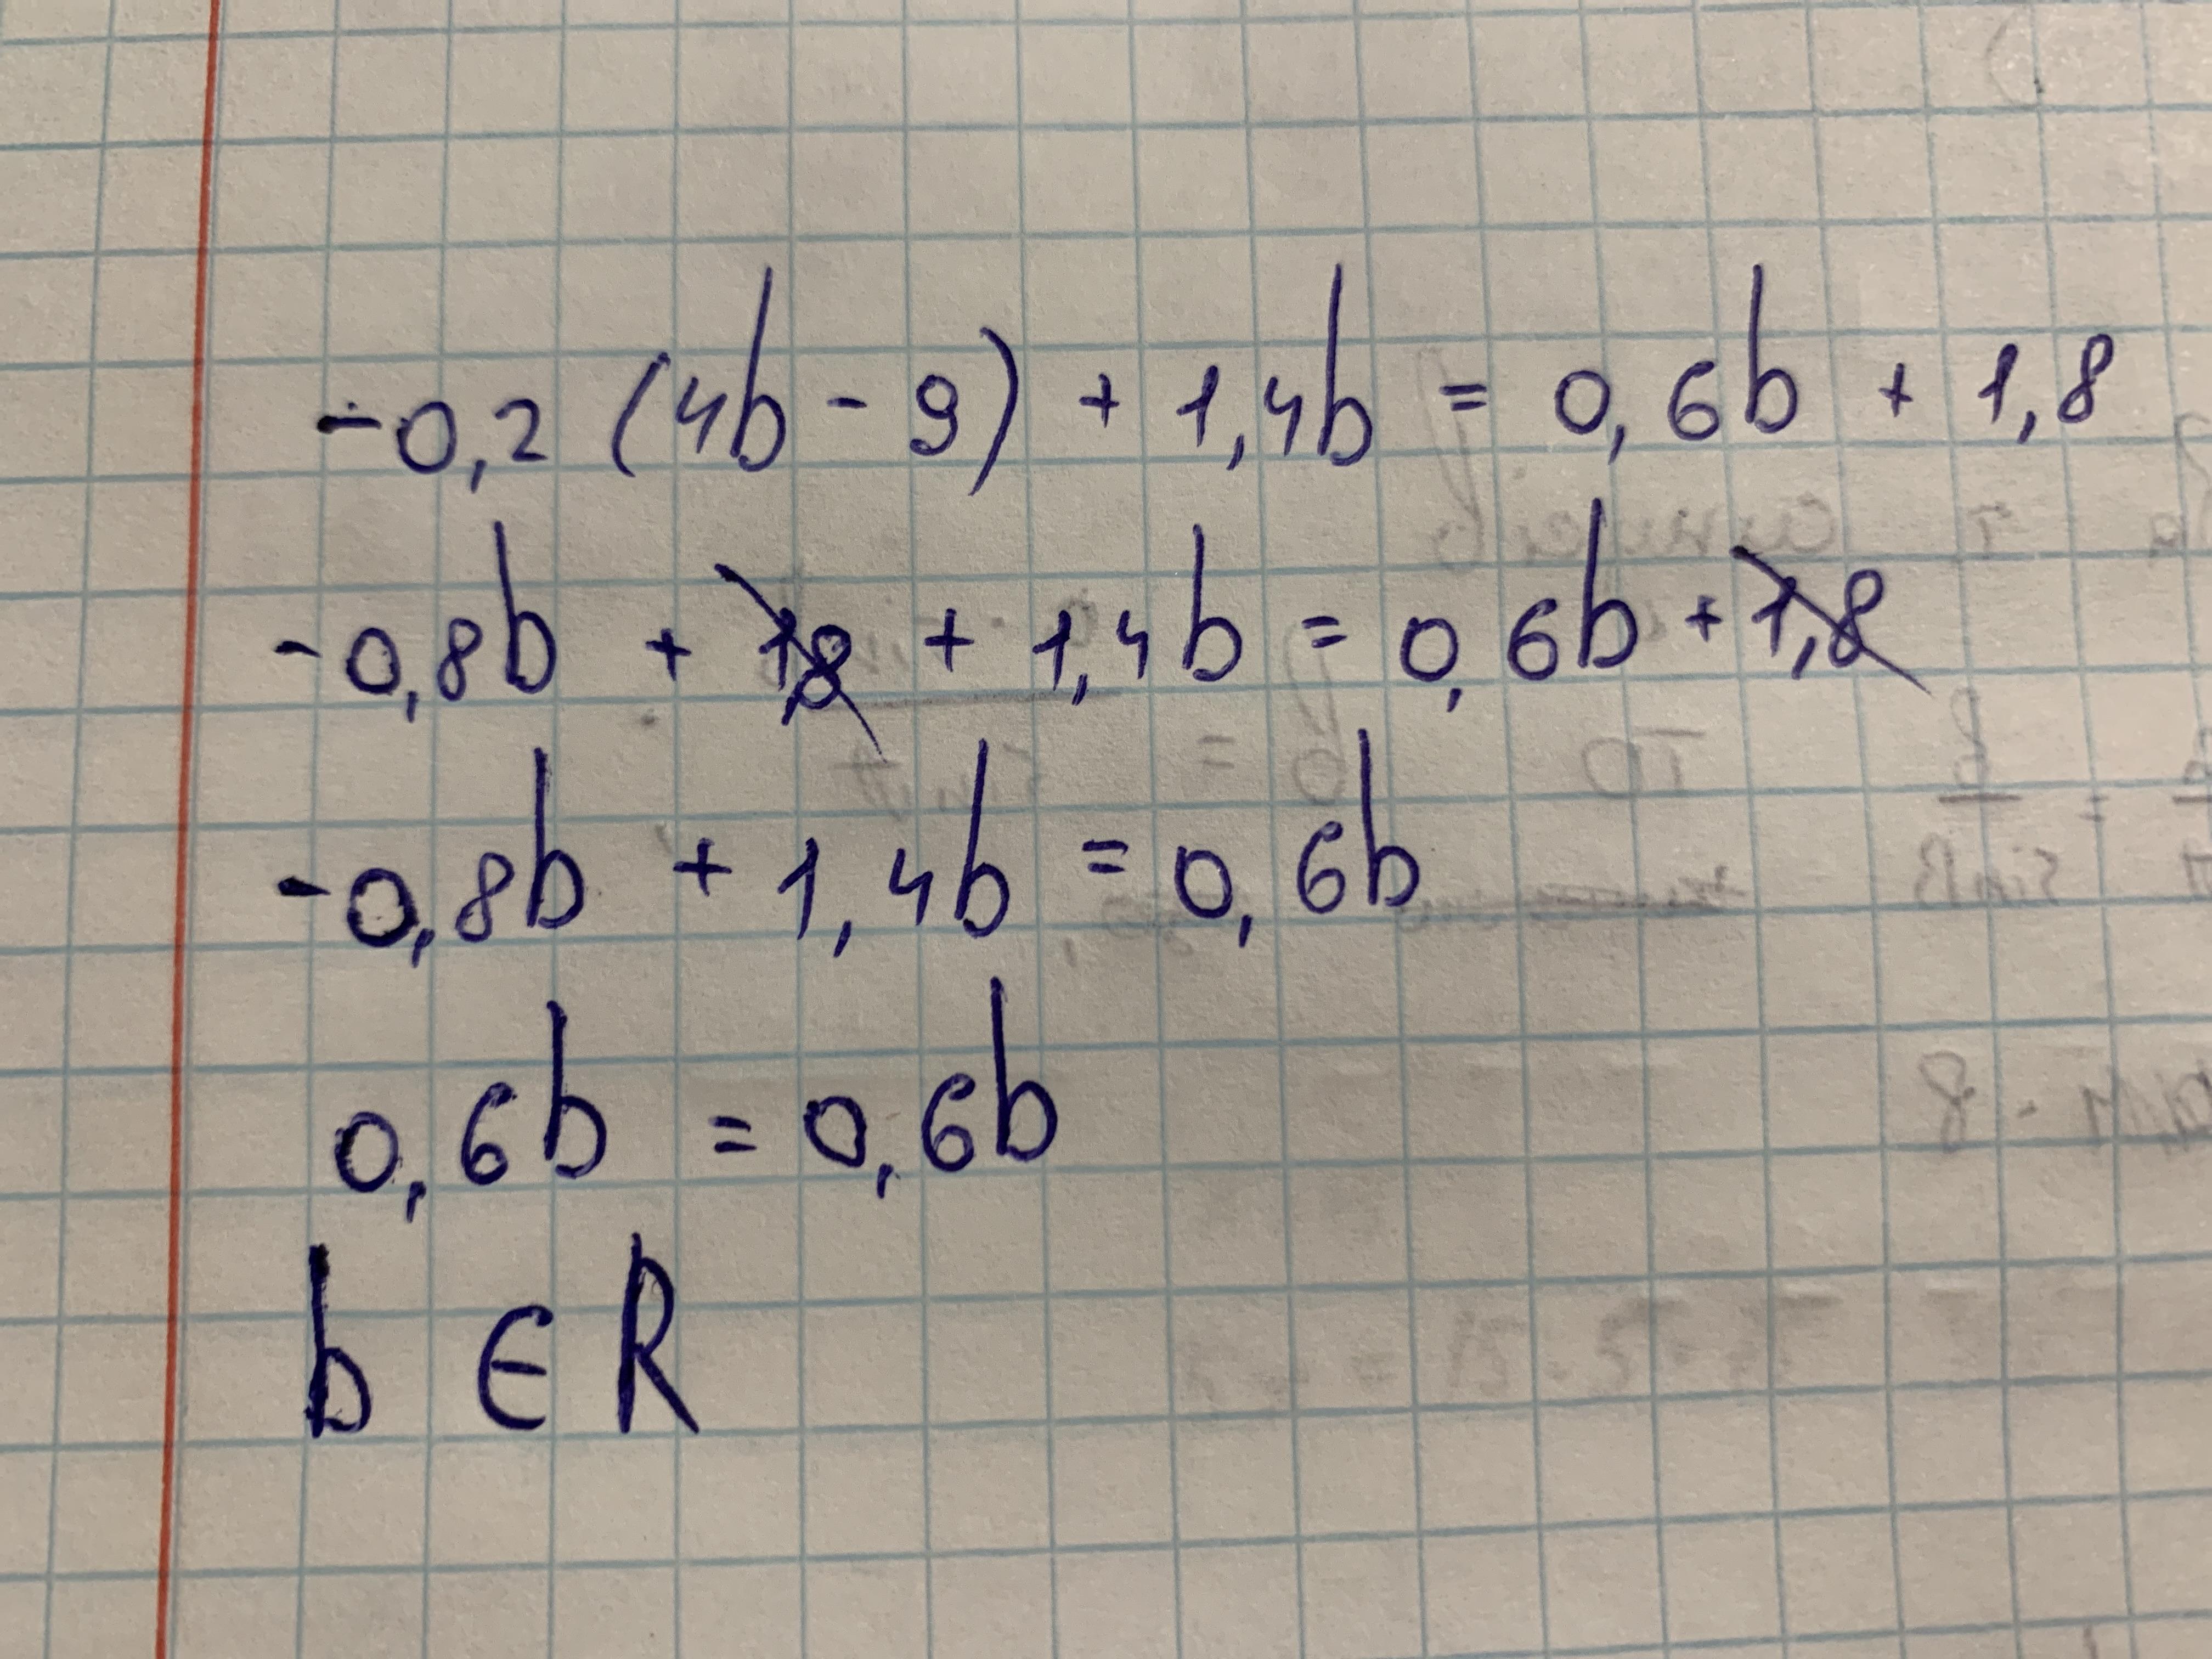 -0,2 (4b - 9) + 1,4b = 0,6b + 1,8
-0,8b + 1,8 + 1,4b = 0,6b + 1,8
-0,8b + 1,4b = 0,6b
0,6b = 0,6b
b ∈ R